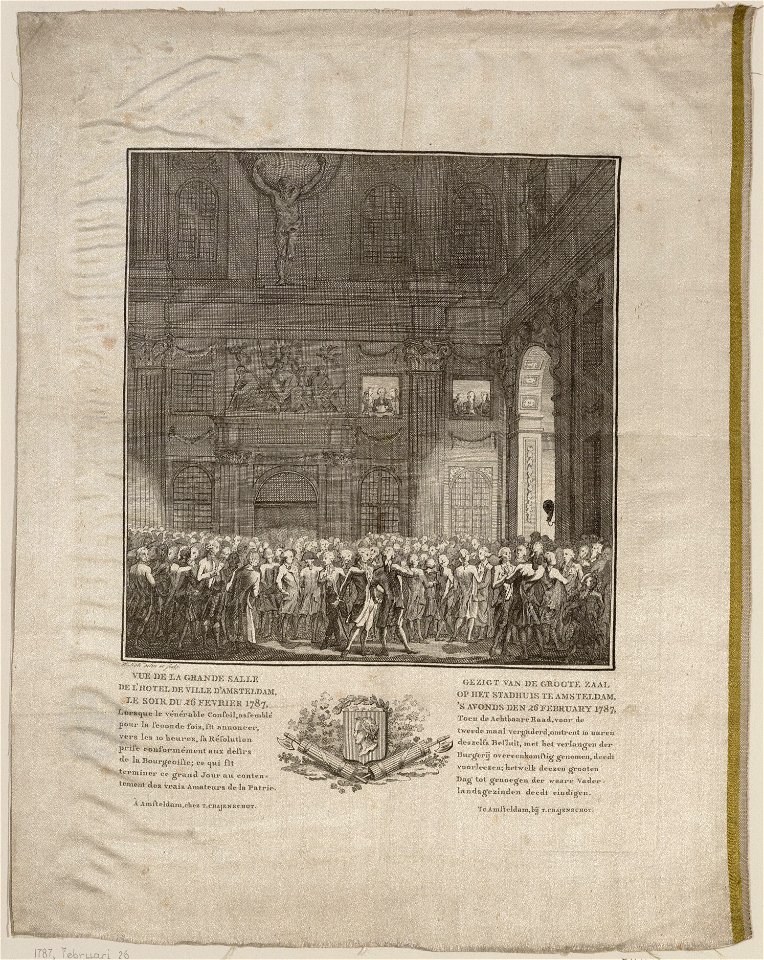 delin et sculp.
VUE DE LA GRANDE SALLE
DE L'HOTEL DE VILLE D'AMSTELDAM,
LE SOIR DU 26 FEVRIER 1787,
Lorsque le vénérable Conseil, assemblé
pour la seconde fois, fit annoncer,
vers les 10 heures, sa Résolution
prise conformément aux desirs
de la Bourgeoisie; ce qui fit
terminer ce grand Jour au conten-
tement des vrais Amateurs de la Patrie.
à Amsteldam, chez T. CRAJENSCHOT.
GEZIGT VAN DE GROOTE ZAAL
OP HET STADHUIS TE AMSTELDAM,
'S AVONDS DEN 26 FEBRUARY 1787,
Toen de Achtbaare Raad, voor de
tweede maal vergaderd, omtrent 10 uuren
deszelfs Besluit, met het verlangen der
Burgerij overeenkomstig genomen, deedt
voorleezen; hetwelk deezen grooten
Dag tot genoegen der waare Vader-
landsgezinden deedt eindigen.
Te Amsteldam, bij T. CRAJENSCHOT.
1787, Februari 26